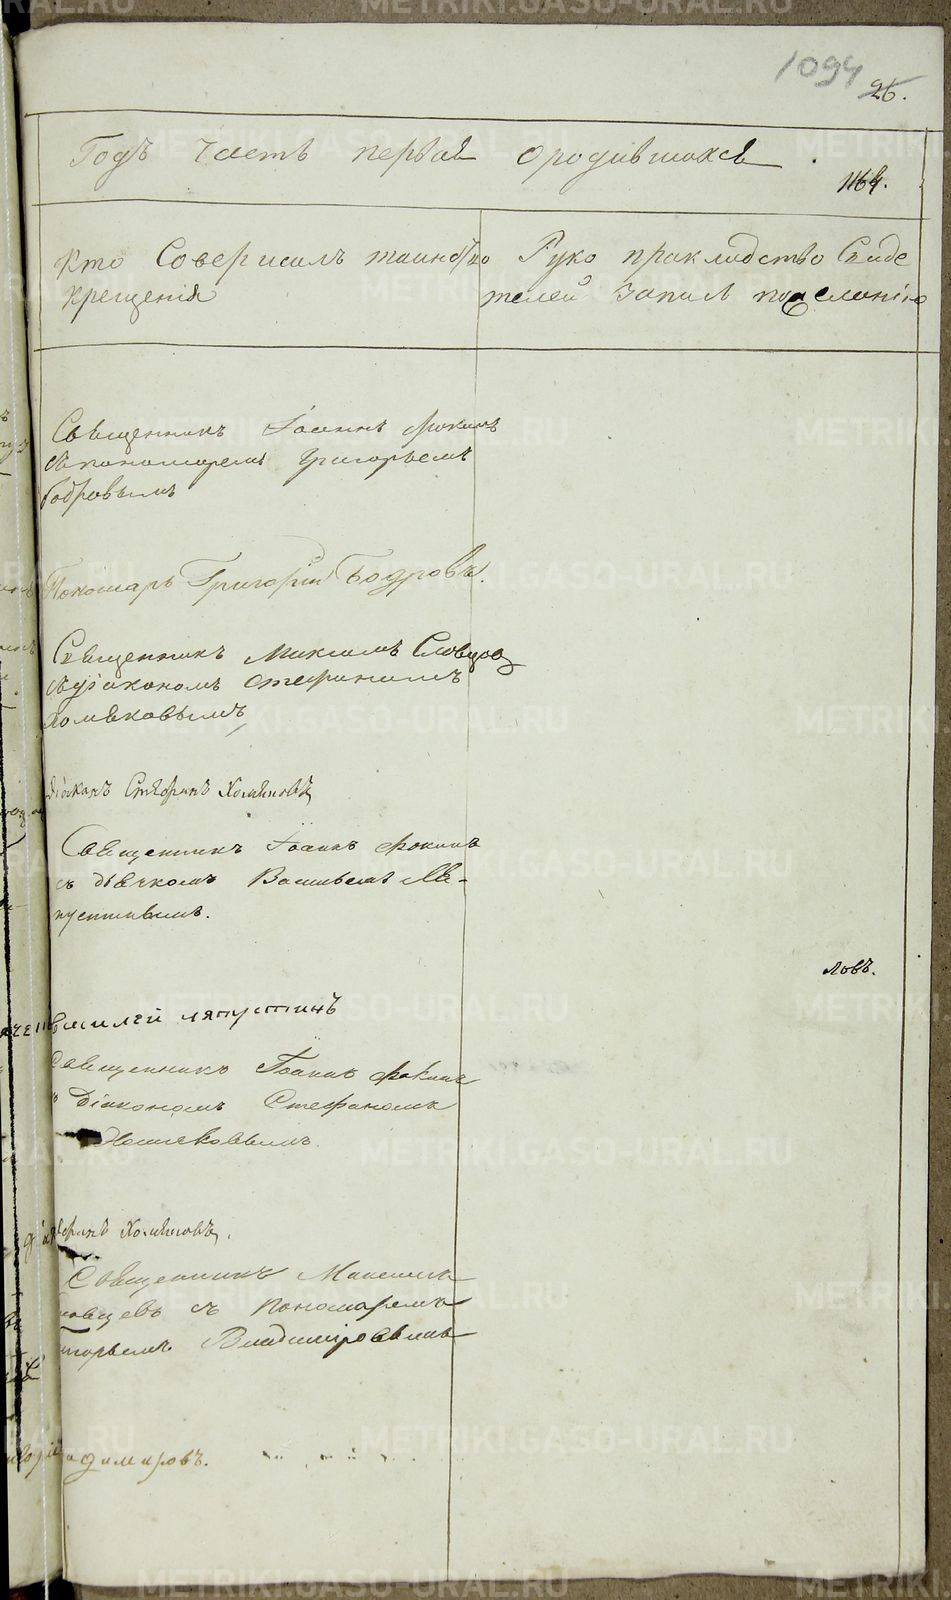 1094
26.
Годъ часть первая о родившихся
1164.
Кто Совершалъ таинство
крещенія
Рукоприкладство Свиде
телей записи по желанію
Священникъ Іоаннъ Фокинъ
съ пономаремъ Григорьемъ
Бодровымъ
Пономарь Григорій Бодровъ.
Священникъ Максимъ Словцовъ
съ діакономъ Стефаномъ
Хомяковымъ
Діаконъ Стефанъ Хомяковъ
Священникъ Іоаннъ Фокинъ
съ дьячкомъ Васильемъ Ля-
пустинымъ.
ловъ.
Василей Ляпустинъ
Священникъ Іоаннъ Фокинъ
съ Діакономъ Стефаномъ
Хомяковымъ.
Хомяковъ.
Священникъ Максимъ
Словцевъ съ пономаремъ
Григорьемъ Владиміровымъ
METRIKI.GASO-URAL.RU